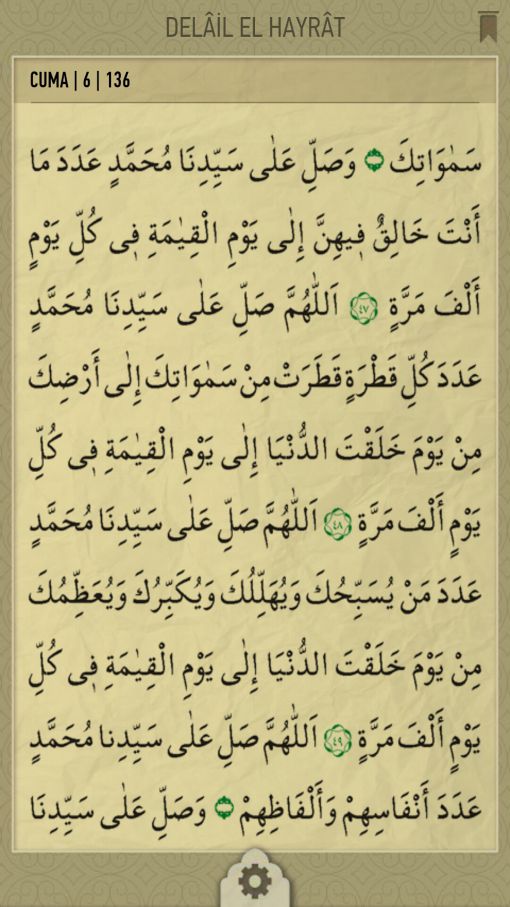 DELÂİL EL HAYRÂT
CUMA | 6 | 136
سَمٰوَاتِكَ وَصَلِّ عَلٰى سَيِّدِنَا مُحَمَّدٍ عَدَدَ مَا
أَنْتَ خَالِقٌ فِيهِنَّ إِلٰى يَوْمِ الْقِيٰمَةِ فِى كُلِّ يَوْمٍ
أَلْفَ مَرَّةٍ ٤٧ اَللّٰهُمَّ صَلِّ عَلٰى سَيِّدِنَا مُحَمَّدٍ
عَدَدَ كُلِّ قَطْرَةٍ قَطَرَتْ مِنْ سَمٰوَاتِكَ إِلٰى أَرْضِكَ
مِنْ يَوْمَ خَلَقْتَ الدُّنْيَا إِلٰى يَوْمِ الْقِيٰمَةِ فِى كُلِّ
يَوْمٍ أَلْفَ مَرَّةٍ ٤٨ اَللّٰهُمَّ صَلِّ عَلٰى سَيِّدِنَا مُحَمَّدٍ
عَدَدَ مَنْ يُسَبِّحُكَ وَيُهَلِّلُكَ وَيُكَبِّرُكَ وَيُعَظِّمُكَ
مِنْ يَوْمَ خَلَقْتَ الدُّنْيَا إِلٰى يَوْمِ الْقِيٰمَةِ فِى كُلِّ
يَوْمٍ أَلْفَ مَرَّةٍ ٤٩ اَللّٰهُمَّ صَلِّ عَلٰى سَيِّدِنا مُحَمَّدٍ
عَدَدَ أَنْفَاسِهِمْ وَأَلْفَاظِهِمْ وَصَلِّ عَلٰى سَيِّدِنَا